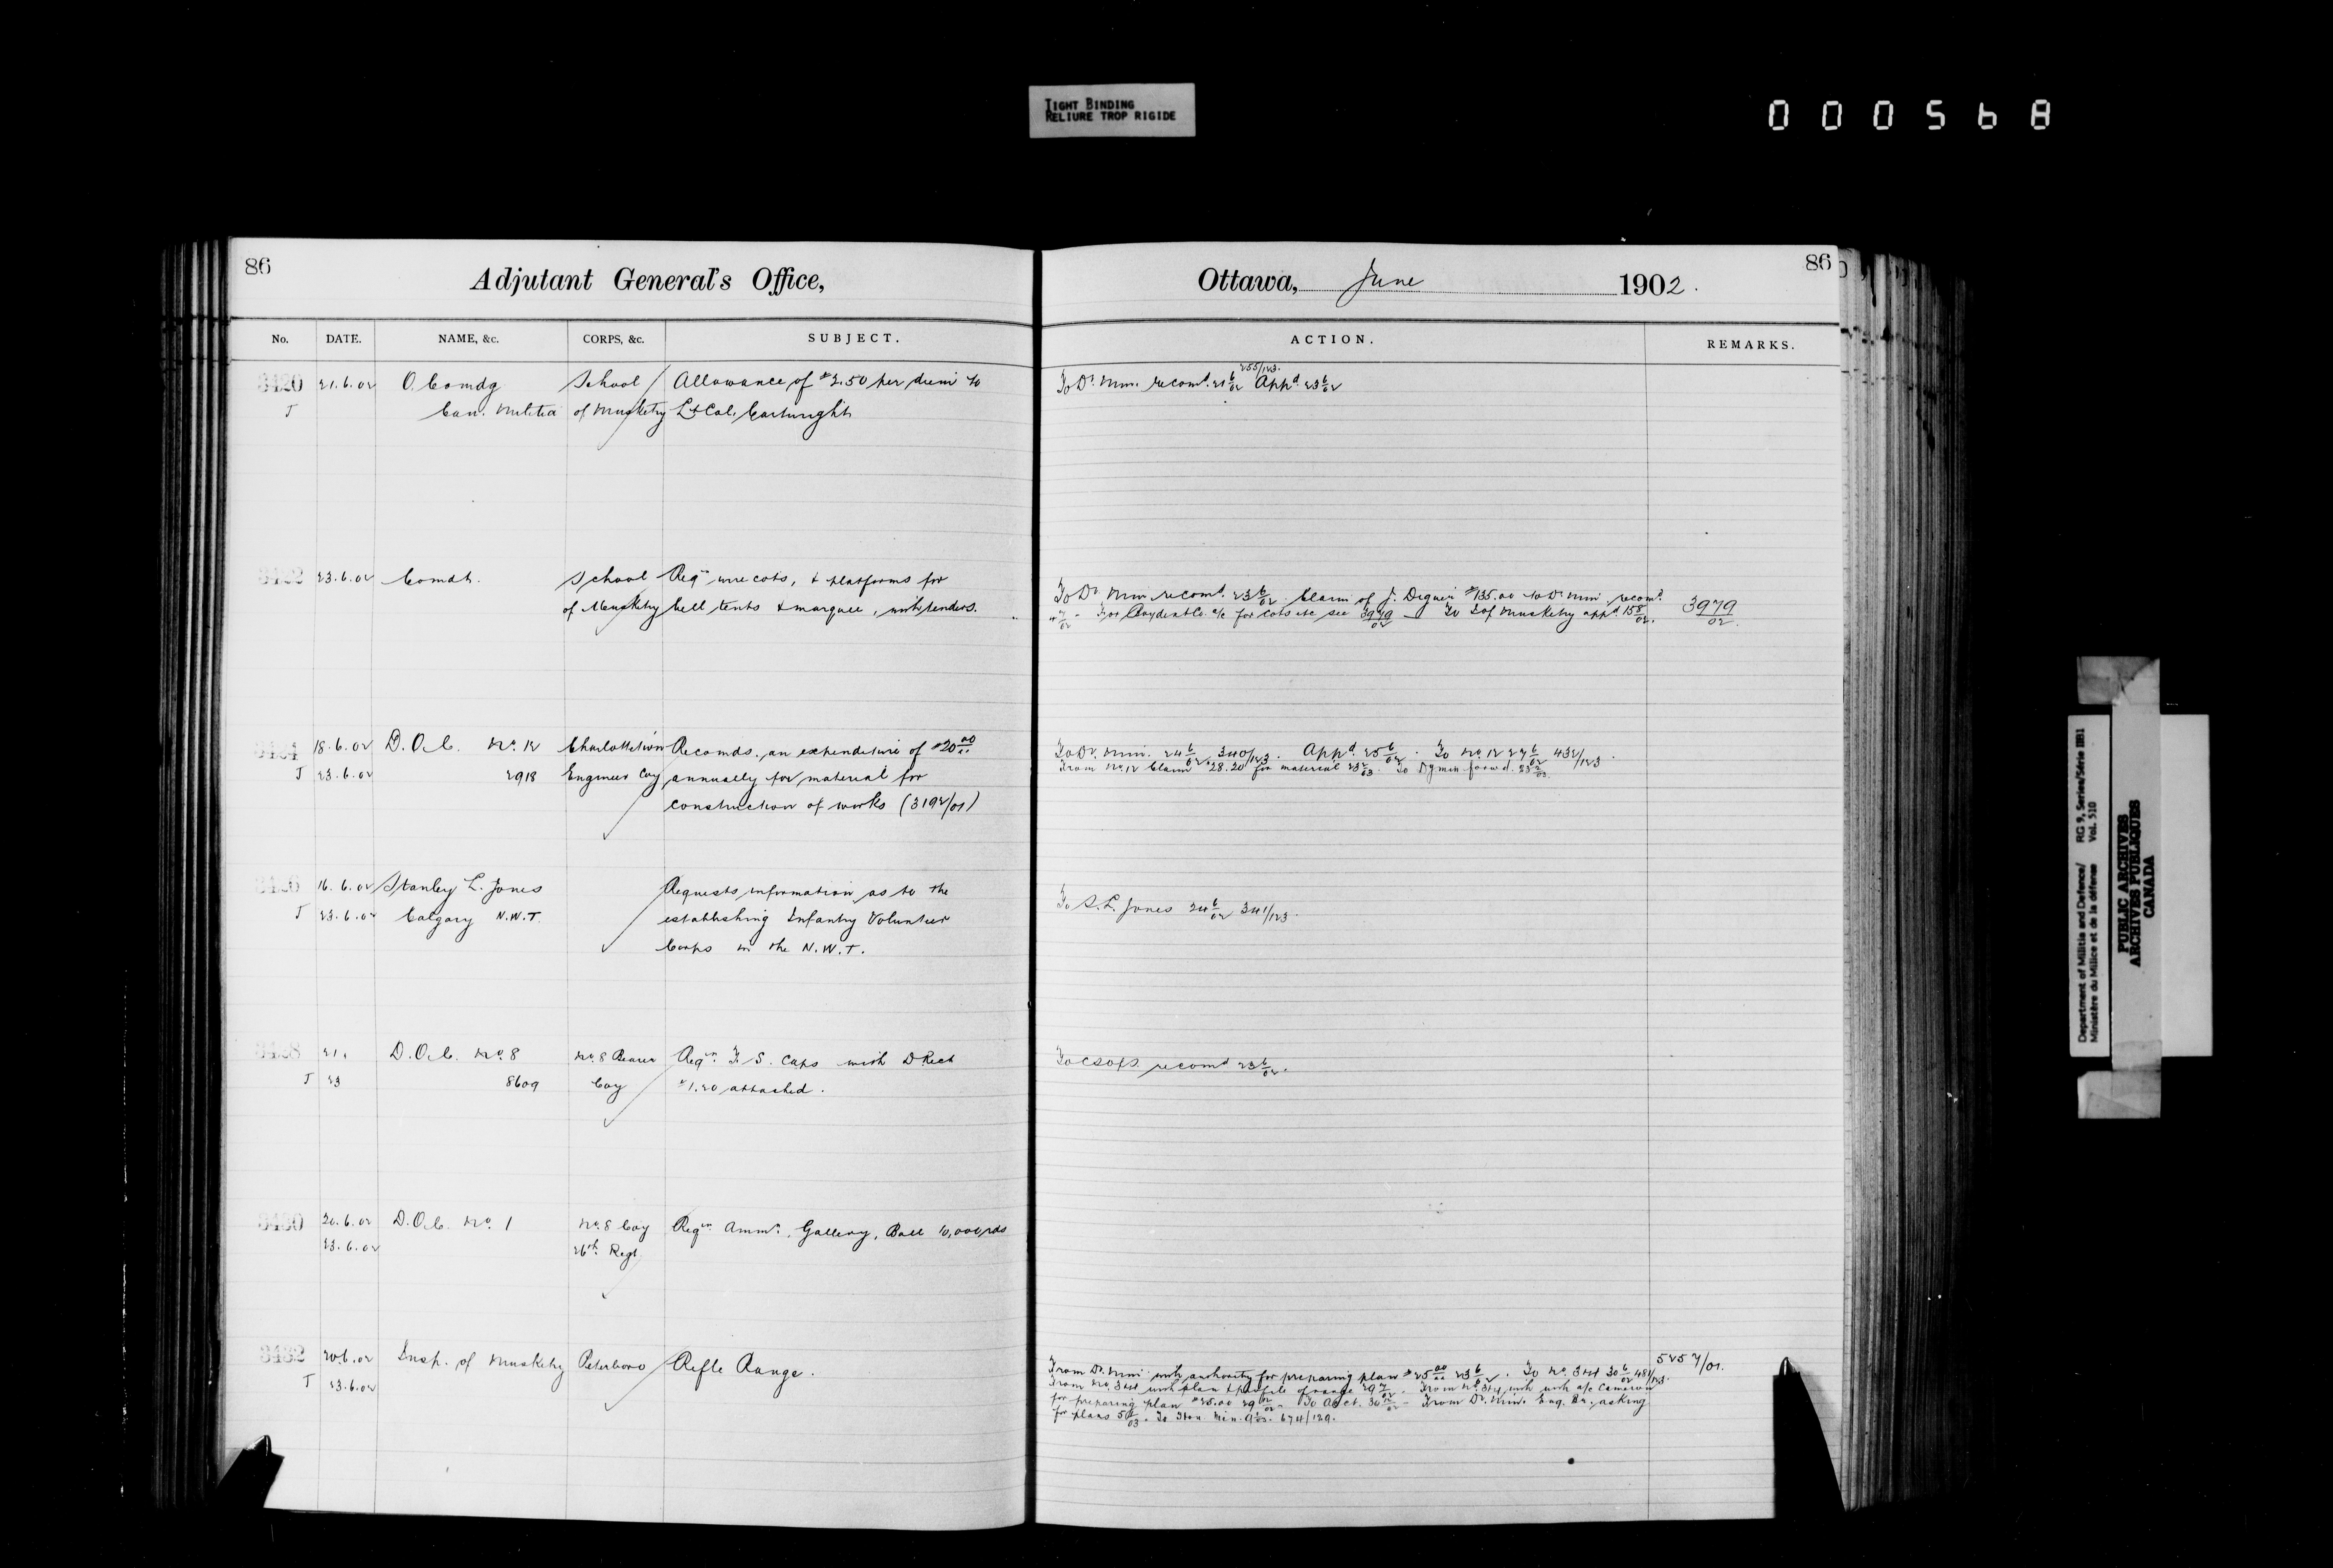 TIGHT BINDING
RELIURE TROP RIGIDE
000568
86
Adjutant General's Office,
No. DATE. NAME, &c. CORPS, &c. SUBJECT.
3420 21.6.02 O. Comdg School Allowance of $2.50 per diem to
J Can. Militia of Musketry Lt Col. Cartwright
3422 23.6.02 Comdt. School Reqn wire cots, & platforms for
of Musketry bell tents & marquee, with tenders.
3424 18.6.02 D.O.C. No. 12 Charlottetown Recomds. an expenditure of $20.00
J 23.6.02 2918 Engineer Coy annually for material for
construction of works (3192/01)
3426 16.6.02 Stanley L. Jones Requests information as to the
J 23.6.02 Calgary N.W.T. establishing Infantry Volunteer
Corps in the N.W.T.
3428 21. D.O.C. No. 8 No. 8 Bearer Reqn. F.S. Caps with D Rect
J 23 8609 Coy $1.20 attached.
3430 20.6.02 D.O.C. No. 1 No. 8 Coy Reqn. Ammn. Gallery, Ball 10,000 rds
23.6.02 26th Regt.
3432 20.6.02 Insp. of Musketry Peterboro Rifle Range.
J 23.6.02
86
Ottawa, June 1902.
ACTION. REMARKS.
255/123
To Dr. Min. recomd. 21 6/02 Appd. 23 6/02
To Dr. Min. recomd. 23 6/02. Claim of J. $135.00 to Dr. Min. recomd.
For a/c for cots etc see 3979/02 To S of Musketry appd. 3979/02
To Dr. Min. 24 6/02 340/123. Appd. 25 6/02. To No. 12 27 6/02 432/123.
From No. 12 Claim $28.20 for material
To S.L. Jones 24 6/02 341/123.
To CSofS. recomd 23 6/02.
From Dr. Min. with authority for preparing plan $25.00 23 6/02. To No. 3&4 30 6/02 481/123. 5257/01.
From No. 3&4 with plan & profile of range 29 From No. 3&4 with a/c Cameron
for preparing plan $25.00 29 To Acct. 30 From Dr. Min. Eng. Br. asking
for plans To Hon. Min. 674/129.
Department of Militia and Defence/ RG 9, Series/Série IIB1
Ministère du Milice et de la défense Vol. 510
PUBLIC ARCHIVES
ARCHIVES PUBLIQUES
CANADA